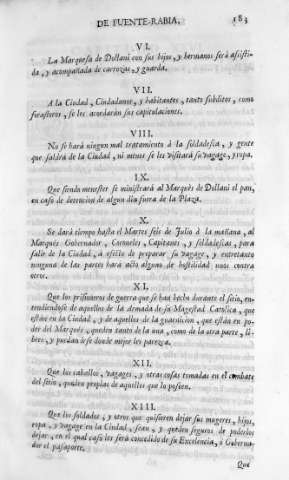 DE FUENTE-RABIA. 183
VI.
La Marquesa de Dollani con sus hijos, y hermanos serà assisti-
da, y acompañada de carrozas, y guarda.
VII.
A la Ciudad, Ciudadanos, y habitantes, tanto subditos, como
forasteros, se les acordaràn sus capitulaciones.
VIII.
No se harà ningun mal tratamiento à la soldadesia, y gente
que saldrà de la Ciudad, ni menos se les visitarà su vagage, y ropa.
IX.
Que siendo menester se ministrarà al Marquès de Dollani el pan,
en caso de detencion de algun dia fuera de la Plaza.
X.
Se darà tiempo hasta el Martes seis de Julio à la mañana, al
Marquès Governador, Coroneles, Capitanes, y soldadesias, para
salir de la Ciudad, à efecto de preparar su vagage, y entretanto
ninguna de las partes harà acto alguno de hostilidad unos contra
otros.
XI.
Que los prisioneros de guerra que se han hecho durante el sitio, en-
tendiendose de aquellos de la Armada de su Magestad Catolica, que
estàn en la Ciudad, y de aquellos de la guarnicion, que estàn en po-
der del Marquès, queden tanto de la una, como de la otra parte, li-
bres, y puedan irse donde mejor les parezca.
XII.
Que los caballos, vagages, y otras cosas tomadas en el combate
del sitio, queden propias de aquellos que lo posien.
XIII.
Que los soldados, y otros que quisieren dejar sus mugeres, hijos,
ropa, y vagage en la Ciudad, sean, y queden seguros de poderlos
dejar, en el qual caso les serà concedido de su Excelencia, ò Governa-
dor el passaporte.
Que